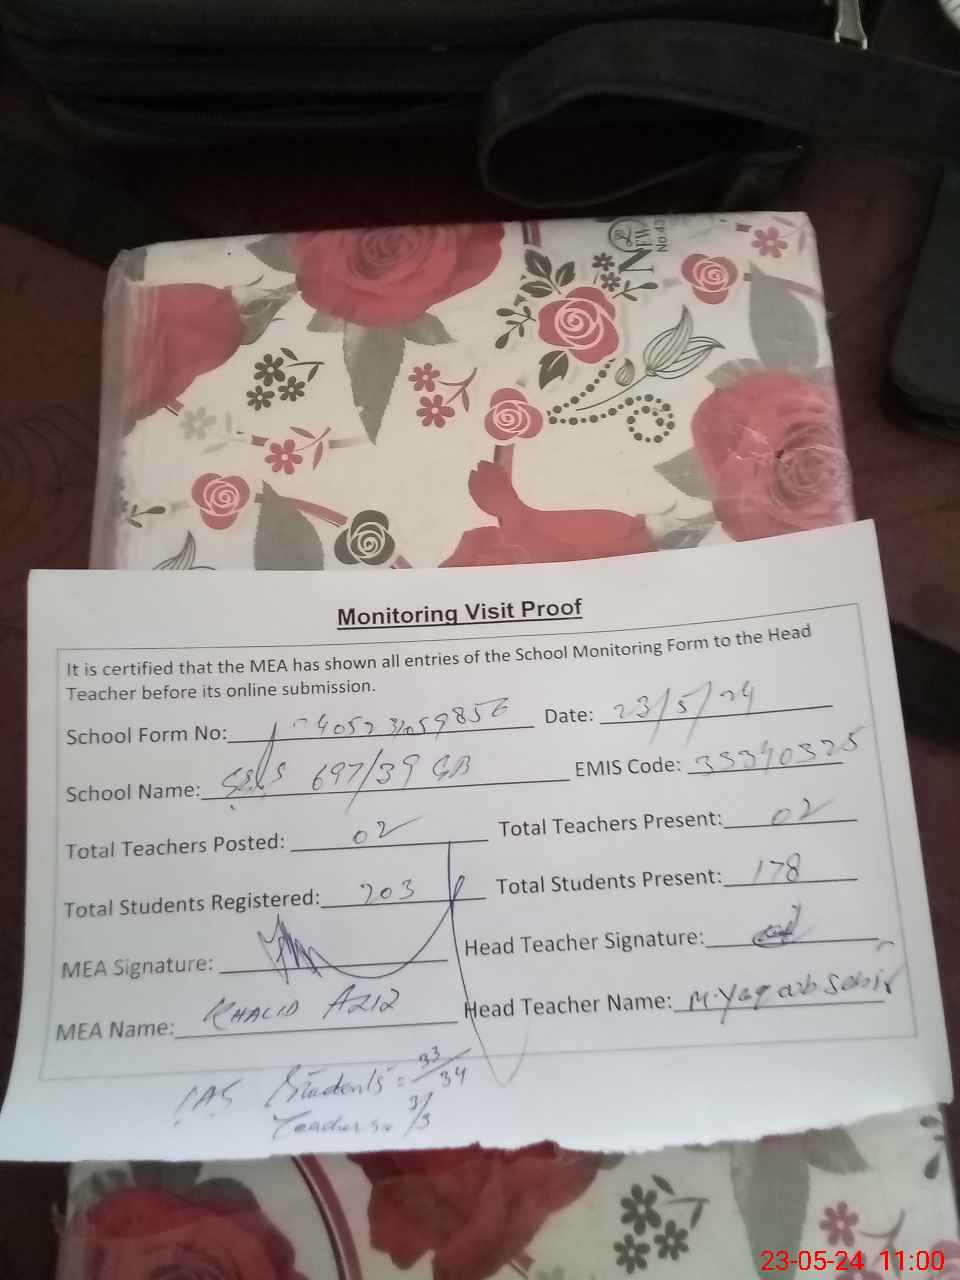 NEW
No 43
Monitoring Visit Proof
It is certified that the MEA has shown all entries of the School Monitoring Form to the Head
Teacher before its online submission.
School Form No: Date: 23/5/24
School Name: 697/39 GB EMIS Code: 33340325
Total Teachers Posted: 02 Total Teachers Present: 02
Total Students Registered: 203 Total Students Present: 178
MEA Signature: Head Teacher Signature:
MEA Name: KHALID AZIZ Head Teacher Name: M. Yaqoob Sabir
Students = 33/34
Teachers = 3/3
23-05-24 11:00